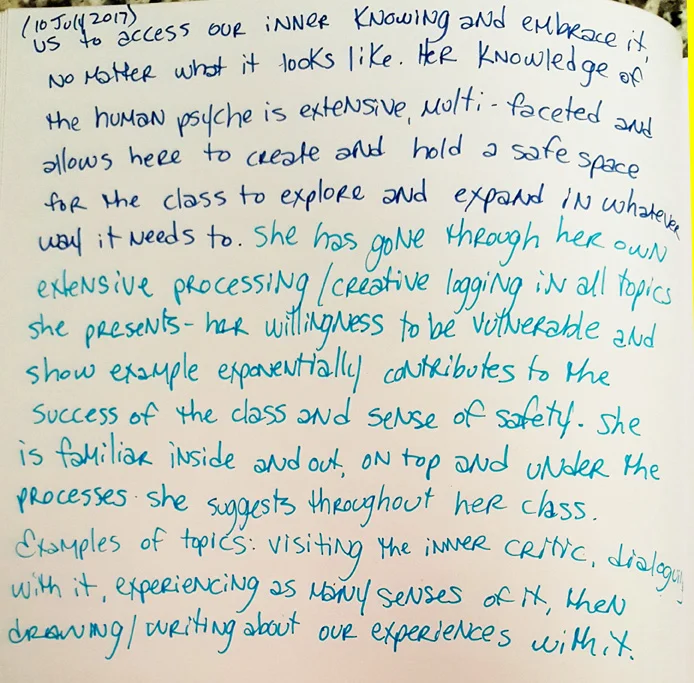 (10 July 2017)
us to access our inner knowing and embrace it,
no matter what it looks like. Her knowledge of
the human psyche is extensive, multi-faceted and
allows here to create and hold a safe space
for the class to explore and expand in whatever
way it needs to. She has gone through her own
extensive processing/creative logging in all topics
she presents - her willingness to be vulnerable and
show example exponentially contributes to the
success of the class and sense of safety. She
is familiar inside and out, on top and under the
processes she suggests throughout her class.
Examples of topics: visiting the inner critic, dialoguing
with it, experiencing as many senses of it, then
drawing/writing about our experiences with it.